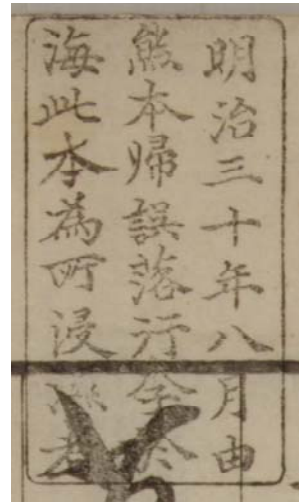 明治三十年八月由
熊本帰誤落行李於
海此本為所浸